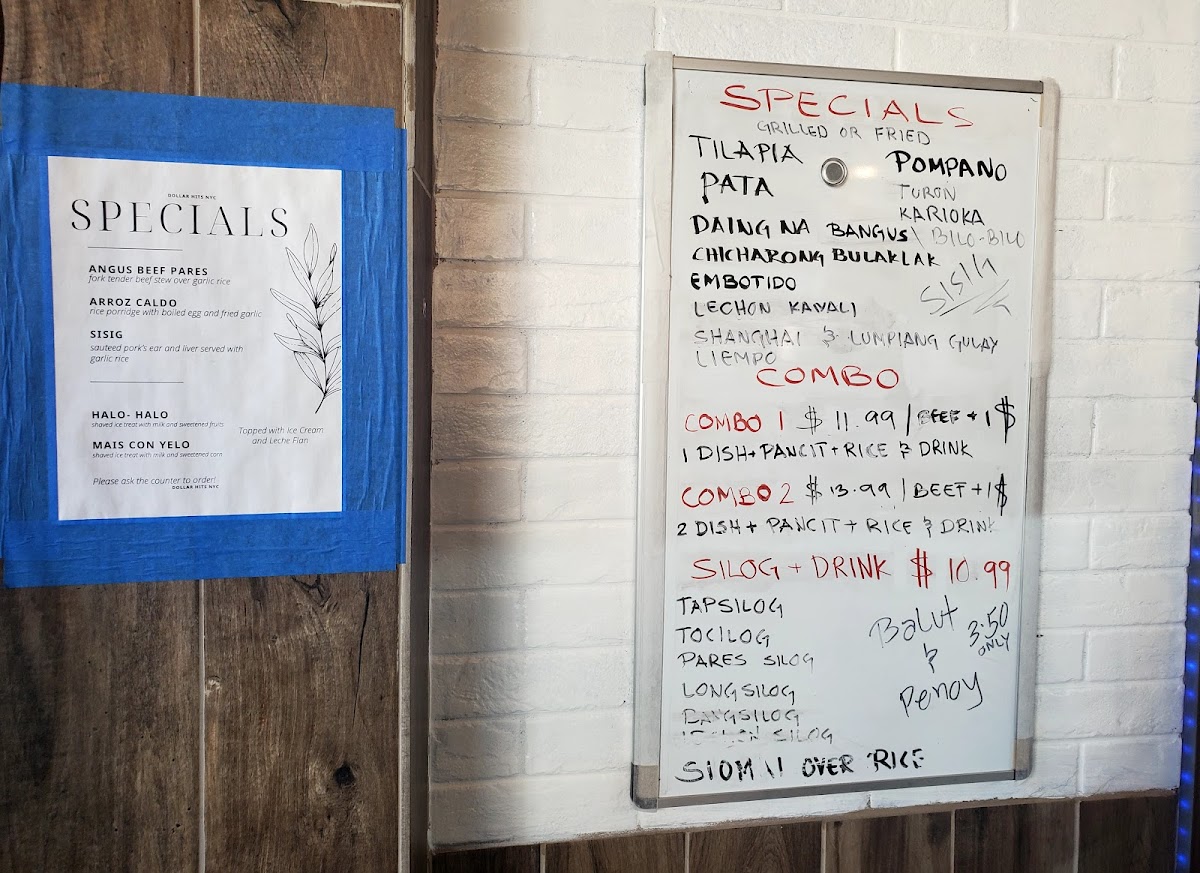 DOLLAR HITS NYC
SPECIALS
ANGUS BEEF PARES
fork tender beef stew over garlic rice
ARROZ CALDO
rice porridge with boiled egg and fried garlic
SISIG
sauteed pork's ear and liver served with
garlic rice
HALO- HALO
shaved ice treat with milk and sweetened fruits
MAIS CON YELO
shaved ice treat with milk and sweetened corn
Topped with Ice Cream
and Leche Flan
Please ask the counter to order!
DOLLAR HITS NYC
SPECIALS
GRILLED OR FRIED
TILAPIA
POMPANO
PATA
TURON
KARIOKA
DAING NA BANGUS \ BILO-BILO
CHICHARONG BULAKLAK
EMBOTIDO
LECHON KAWALI
SHANGHAI & LUMPIANG GULAY
LIEMPO
COMBO
COMBO 1 $ 11.99 / BEEF + 1$
1 DISH + PANCIT + RICE & DRINK
COMBO 2 $ 13.99 / BEEF + 1$
2 DISH + PANCIT + RICE & DRINK
SILOG + DRINK $ 10.99
TAPSILOG
TOCILOG
PARES SILOG
LONGSILOG
BANGSILOG
SILOG
Balut
&
Penoy
3.50
ONLY
SIOMAI OVER RICE